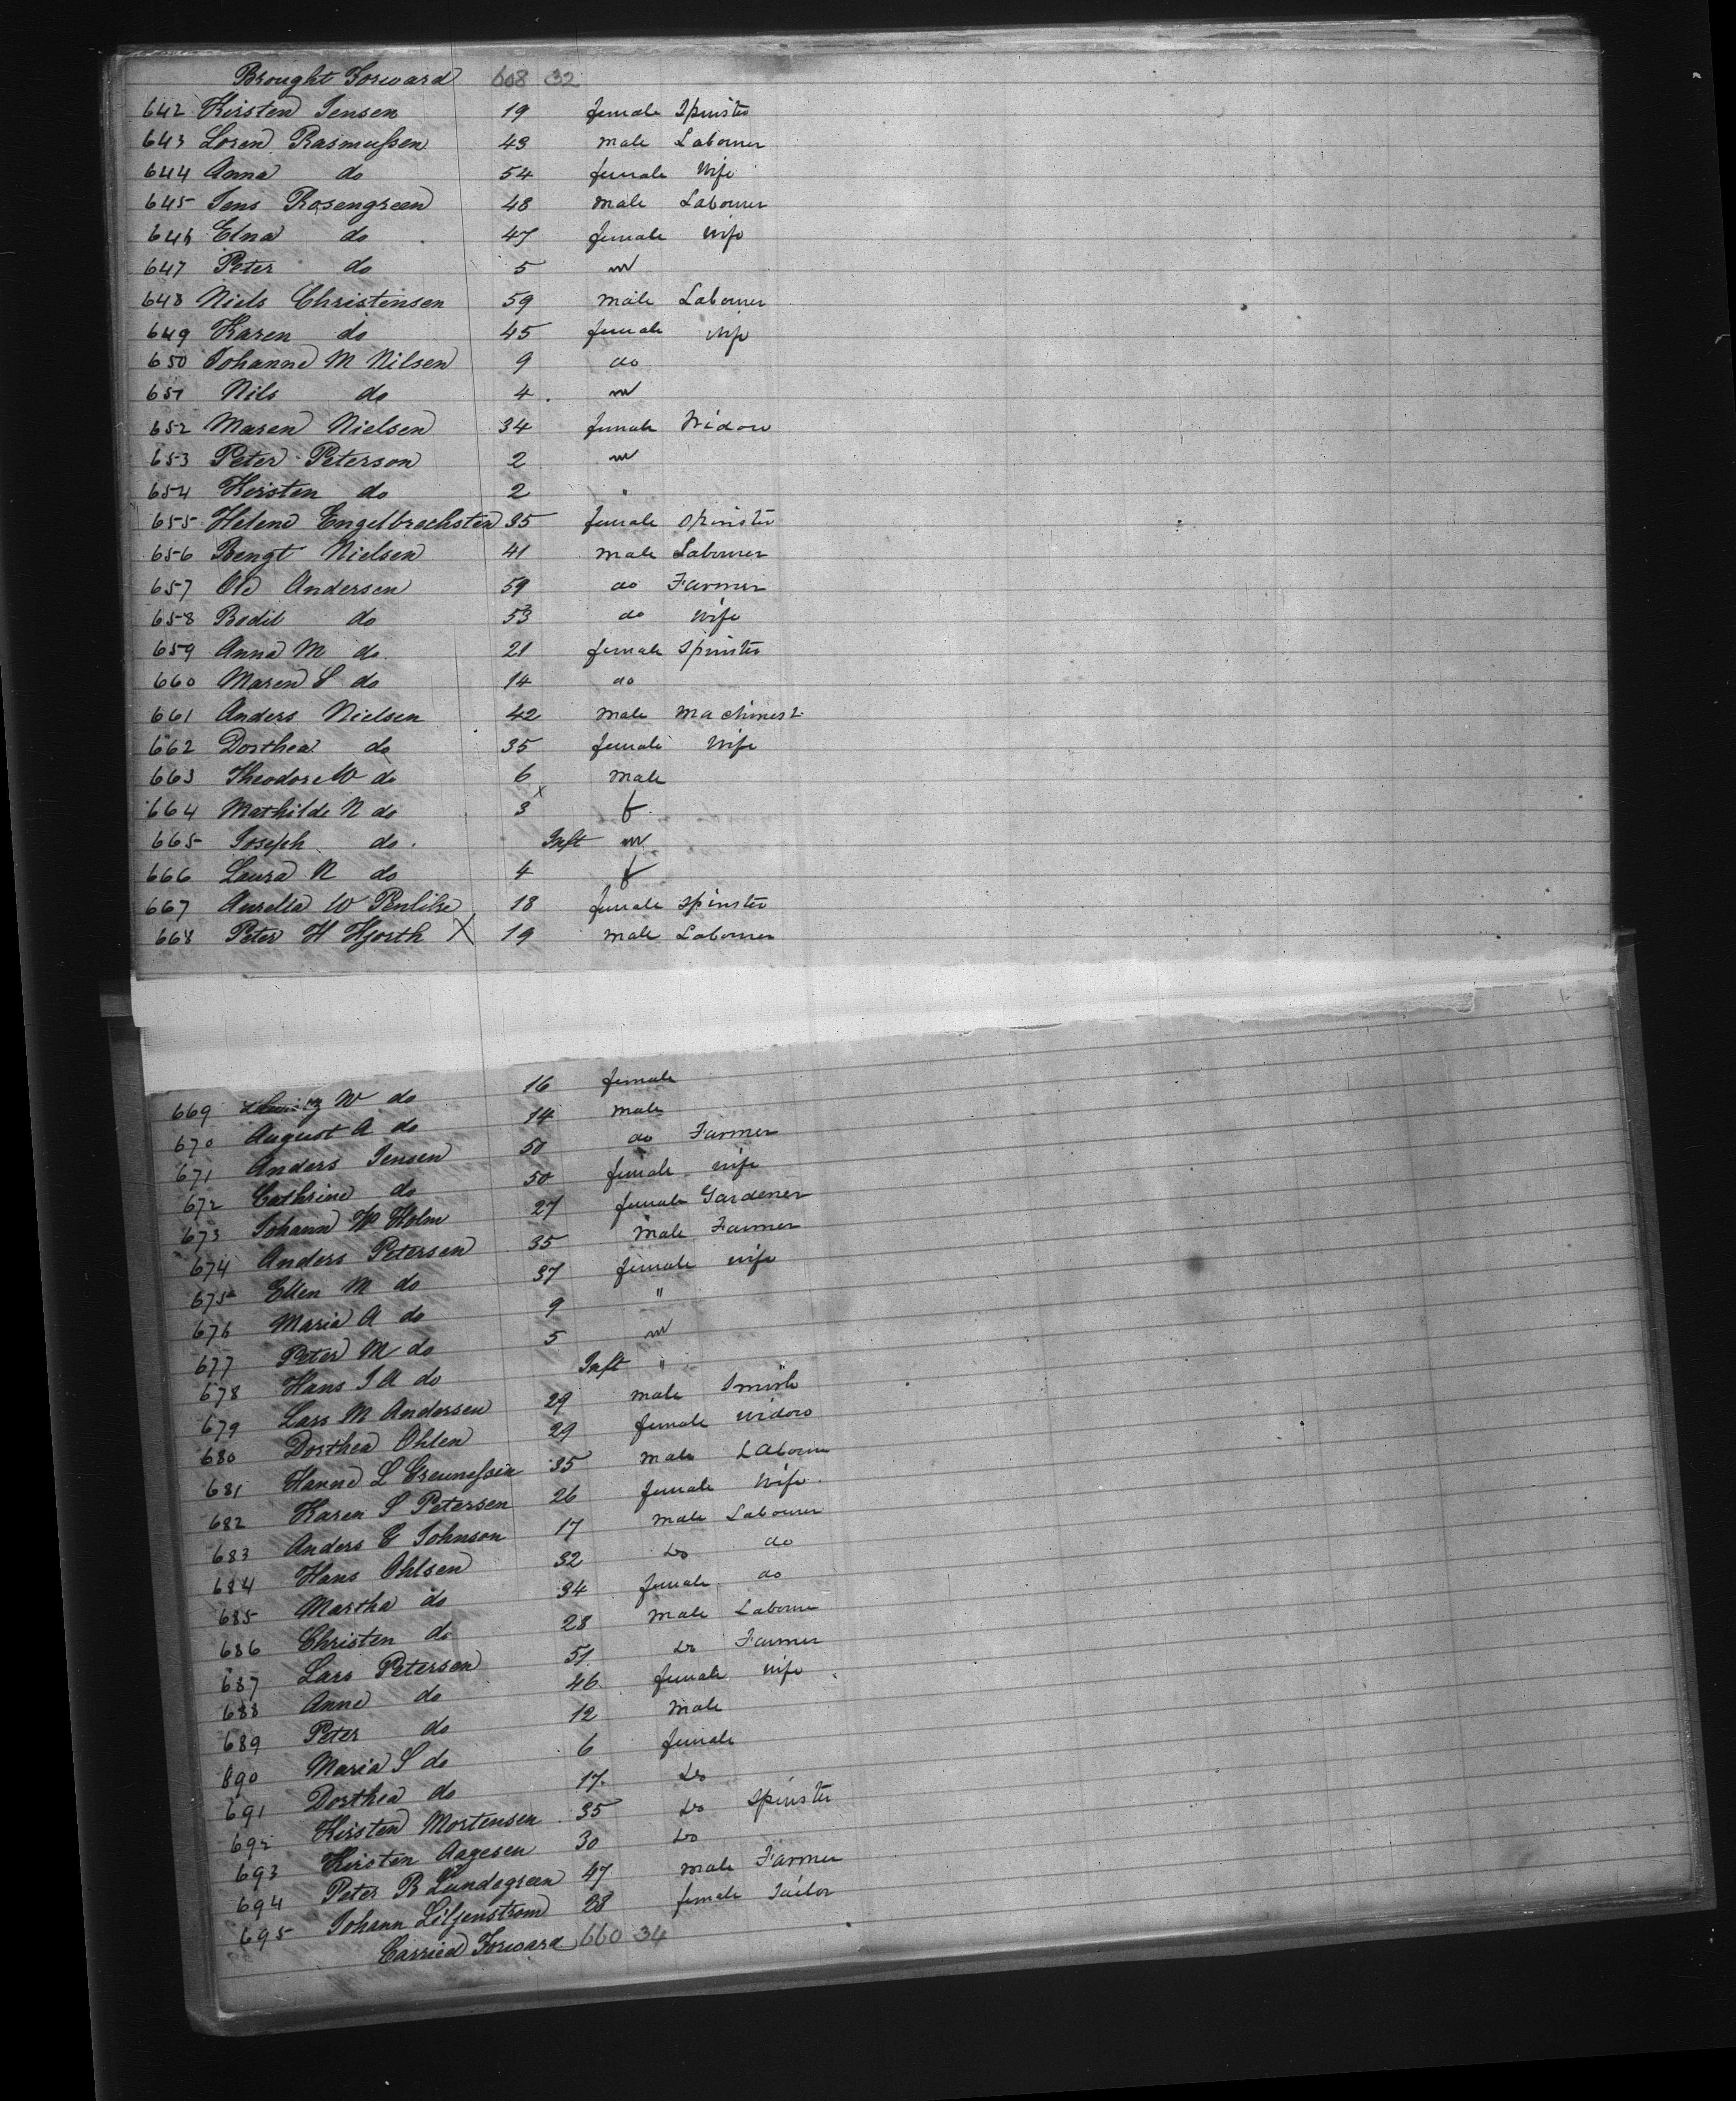 Brought Forward 608 32
642 Kirsten Jensen 19 female Spinster
643 Loren Rasmussen 43 male Labourer
644 Anna do 54 female Wife
645 Jens Rosengreen 48 male Labourer
646 Elna do 47 female Wife
647 Peter do 5 m
648 Niels Christensen 59 male Labourer
649 Karen do 45 female Wife
650 Johanne M Nilsen 9 do
651 Nils do 4 m
652 Maren Nielsen 34 female Widow
653 Peter Peterson 2 m
654 Kirsten do 2 "
655 Helene Engelbrechsten 35 female Spinster
656 Bengt Nielsen 41 male Labourer
657 Ole Andersen 59 do Farmer
658 Bodil do 53 do Wife
659 Anna M do 21 female Spinster
660 Maren S do 14 do
661 Anders Nielsen 42 male Machinest
662 Dorthea do 35 female Wife
663 Theodore W do 6 male
664 Mathilde N do 3 x f
665 Joseph do Inft m
666 Laura N do 4 f
667 Aurelia W 18 female Spinster
668 Peter H Hjorth X 19 male Labourer
669 W do 16 female
670 August A do 14 male
671 Anders Jensen 50 do Farmer
672 Cathrine do 50 female wife
673 Johann W Holm 27 female Gardener
674 Anders Petersen 35 male Farmer
675 Ellen M do 37 female wife
676 Maria A do 9 "
677 Peter M do 5 m
678 Hans J A do Inft "
679 Lars M Andersen 29 male Smith
680 Dorthea Ohlen 29 female widow
681 Hanne L 35 male Labourer
682 Karen S Petersen 26 female Wife
683 Anders E Johnson 17 male Labourer
684 Hans Ohlsen 32 Do do
685 Martha do 34 female do
686 Christen do 28 male Labourer
687 Lars Petersen 51 Do Farmer
688 Anne do 46 female wife
689 Peter do 12 male
890 Maria S do 6 female
691 Dorthea do 17 Do
692 Kirsten Mortensen 35 Do Spinster
693 Kirsten Aagesen 30 Do
694 Peter B Lundegreen 47 male Farmer
695 Johann Liljenstrom 28 female Tailor
Carried Forward 660 34